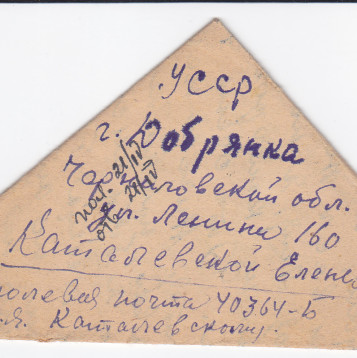 УССР
г. Добрянка
Черниговской обл.
ул. Ленина 160
Каталевской Елене
полевая почта 40364-Б
Каталевскому.
пол. 21/IV
отв. 24/IV